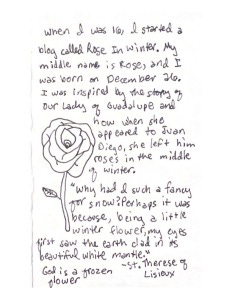 When I was 16, I started a
blog called Rose In Winter. My
middle name is Rose, and I
was born on December 26.
I was inspired by the story of
Our Lady of Guadalupe and
how when she
appeared to Juan
Diego, she left him
roses in the middle
of winter.
"Why had I such a fancy
for snow? Perhaps it was
because, being a little
winter flower, my eyes
first saw the earth clad in its
beautiful white mantle."
-St. Therese of
Lisieux
God is a frozen
flower